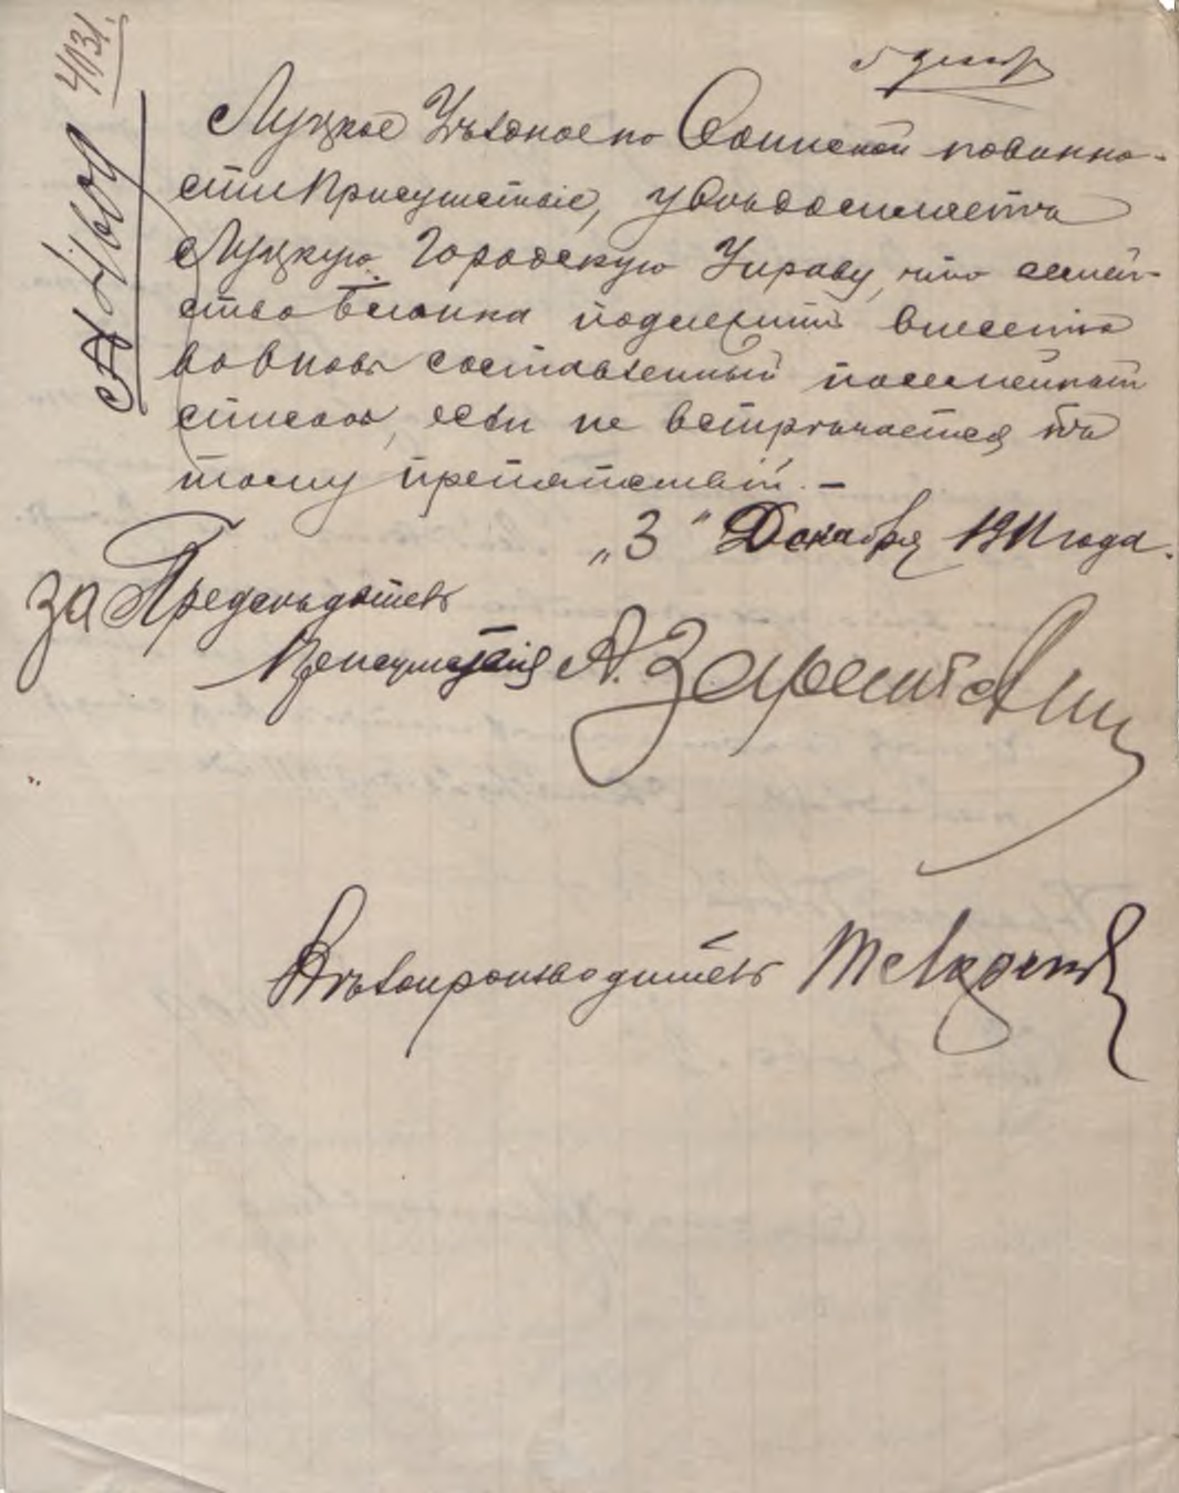 4131.
5 декаб
Луцкое Уѣздное по Воинской повинно-
сти Присутствіе, увѣдомляетъ
Луцкую Городскую Управу, что семей-
ство подлежитъ внесенію
во вновь составленный посемейный
списокъ, если не встрѣчается къ
тому препятствій. —
„3" Декабря 1911 года.
За Предсѣдателя
Присутствія А.
Дѣлопроизводитель